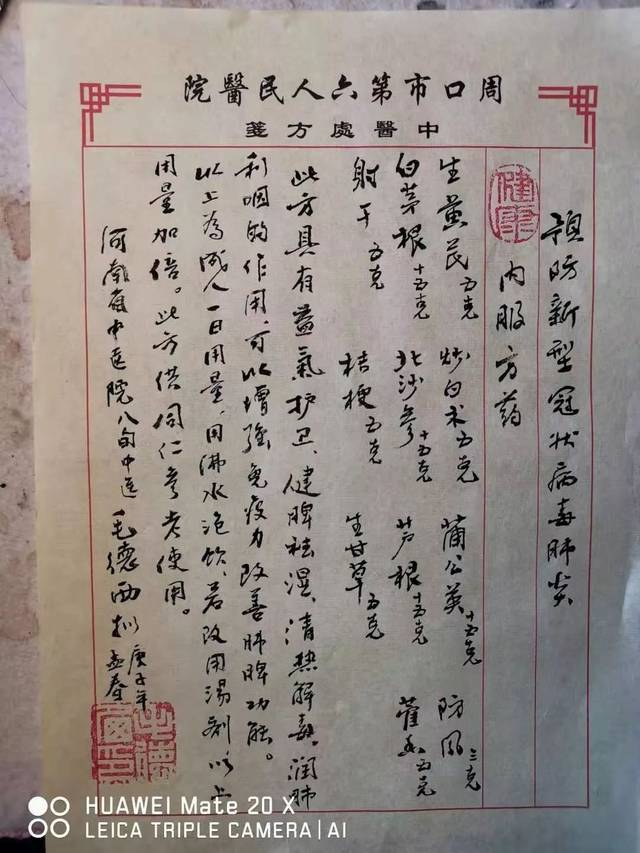 周口市第六人民醫院
中醫處方箋
預防新型冠状病毒肺炎
健康
内服方药
生黄芪五克 炒白术五克 蒲公英十五克 防风三克
白茅根十五克 北沙參十五克 芦根十五克 藿香五克
射干五克 桔梗五克 生甘草五克
此方具有益氣护卫、健脾祛湿、清热解毒、润肺
利咽的作用，可以增强免疫力改善肺脾功能。
以上為成人一日用量，用沸水泡饮，若改用湯剂以上
用量加倍。此方供同仁參考使用。
河南省中医院八旬中医毛德西拟 庚子年
孟春
HUAWEI Mate 20 X
LEICA TRIPLE CAMERA | AI